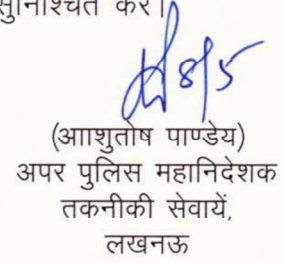 सुनिश्चित करें।
8/5
(आाशुतोष पाण्डेय)
अपर पुलिस महानिदेशक
तकनीकी सेवायें,
लखनऊ